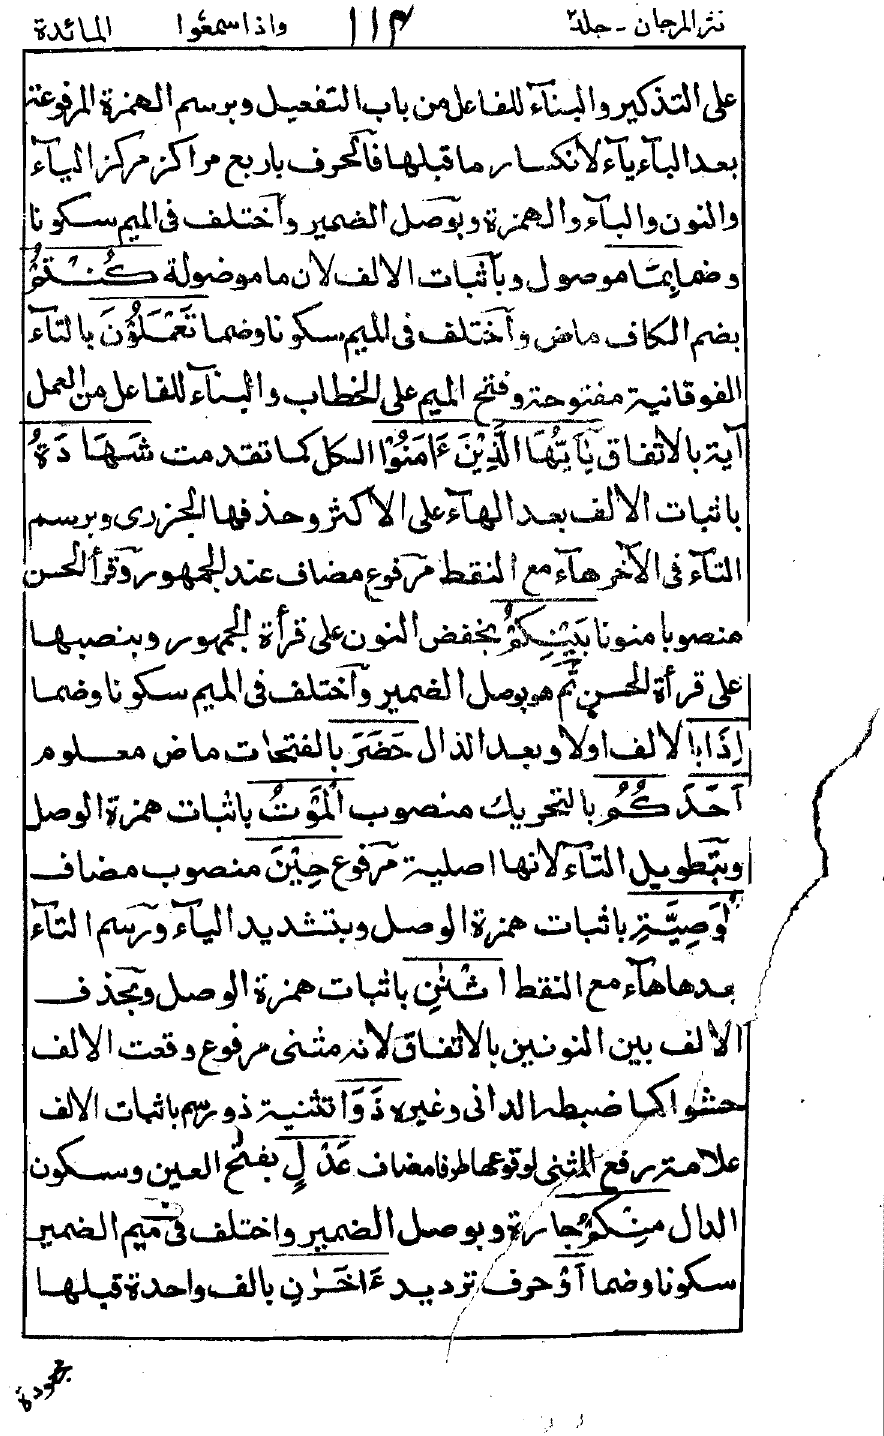 نثر المرجان - جلد ٢ ١١٤ واذا سمعوا المائدة
على التذكير والبنآء للفاعل من باب التفعيل وبرسم الهمزة المرفوعة
بعد البآء يآء لانكسار ما قبلها فالحرف باربع مراكز مركز اليآء
والنون والبآء والهمزة وبوصل الضمير واختلف فى الميم سكونا
وضما بِمَا موصول وبآثبات الالف لان ما موصولة كُنْتُمْ
بضم الكاف ماض واختلف فى الميم سكونا وضما تَعْمَلُوْنَ بالتآء
الفوقانية مفتوحة وفتح الميم على الخطاب والبنآء للفاعل من العمل
آية بالاتفاق يٰٓاَيُّهَا الَّذِيْنَ ءَامَنُوْا الكل كما تقدمت شَهَادَةُ
باثبات الالف بعد الهآء على الاكثر وحذفها الجزرى وبرسم
التآء فى الآخر هآء مع النقط مرفوع مضاف عند الجمهور وقرأ الحسن
منصوبا منونا بَيْنِكُمْ بخفض النون على قرأة الجمهور وبنصبها
على قرأة الحسن ثم هو بوصل الضمير واختلف فى الميم سكونا وضما
اِذَا بالالف اولا وبعد الذال حَضَرَ بالفتحات ماض معلوم
اَحَدَكُمُ بالتحريك منصوب الْمَوْتُ باثبات همزة الوصل
وبتطويل التآء لانها اصلية مرفوع حِيْنَ منصوب مضاف
الْوَصِيَّةِ باثبات همزة الوصل وبتشديد اليآء ورسم التآء
بعدها هآء مع النقط اثْنٰنِ باثبات همزة الوصل وبحذف
الالف بين النونين بالاتفاق لانه مثنى مرفوع وقعت الالف
حشوا كما ضبطه الدانى وغيره ذَوَا تثنية ذو رسم باثبات الالف
علامة رفع المثنى لوقوعها طرفا مضاف عَدْلٍ بفتح العين وسكون
الدال مِنْكُمْ جارة وبوصل الضمير واختلف فى ميم الضمير
سكونا وضما اَوْ حرف ترديد ءَاخَرٰنِ بالف واحدة قبلها